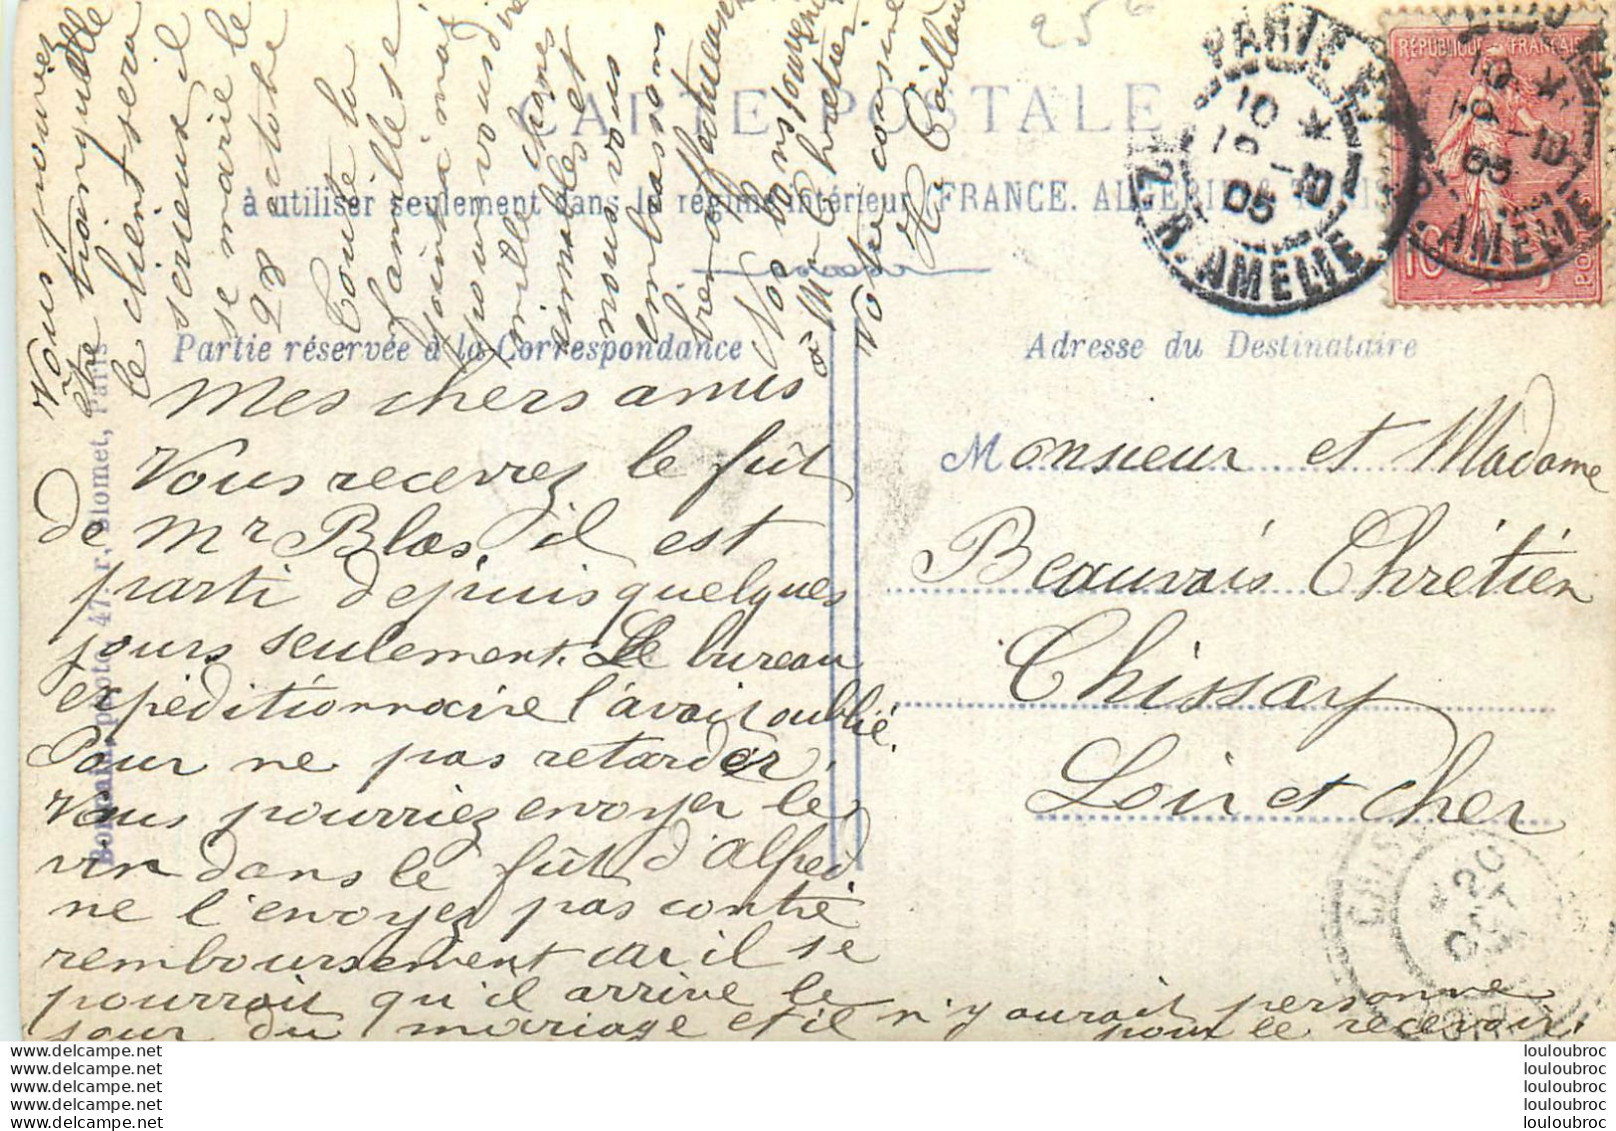 CARTE POSTALE
à utiliser seulement dans le régime intérieur (FRANCE. ALGERIE &
Partie réservée à la Correspondance
Adresse du Destinataire
Mes chers amis
Vous recevrez le fût
de Mr Blas. il est
parti depuis quelques
jours seulement. Le bureau
expéditionnaire l'avait oublié.
Pour ne pas retarder,
Vous pourriez envoyer le
vin dans le fût d'Alfred
ne l'envoyez pas contre
remboursement car il se
pourrait qu'il arrive le
jour du mariage et il n'y aurait personne
pour le recevoir.
Vous pouvez
être tranquille
le client sera
sérieux il
se marie le
28 octobre
Toute la
famille se
joint à moi
pour vous dire
mille choses
aimables et
nous vous
embrassons
bien affectueusement
Nos bons souvenirs
à Mr
Votre cousine
Monsieur et Madame
Beauvais Chrétien
Chissay
Loir et Cher
RÉPUBLIQUE FRANÇAISE
10
POSTES
PARIS
10 *
19 -10
05
R. AMELIE
10 *
19 -10
05
AMELIE
20
OCT
photo 47. r. Blomet, Paris
www.delcampe.net
www.delcampe.net
www.delcampe.net
www.delcampe.net
www.delcampe.net
louloubroc
louloubroc
louloubroc
louloubroc
louloubroc